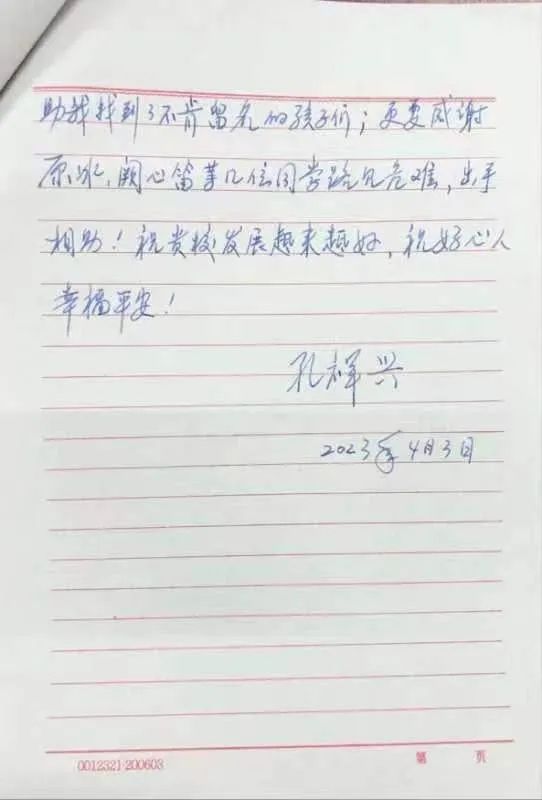 助我找到了不肯留名的孩子们；更要感谢
原冰、阙心笛等几位同学路见危难，出手
相助！祝贵校发展越来越好，祝好心人
幸福平安！
孔祥兴
2023年4月3日
0012321·200603 第 页